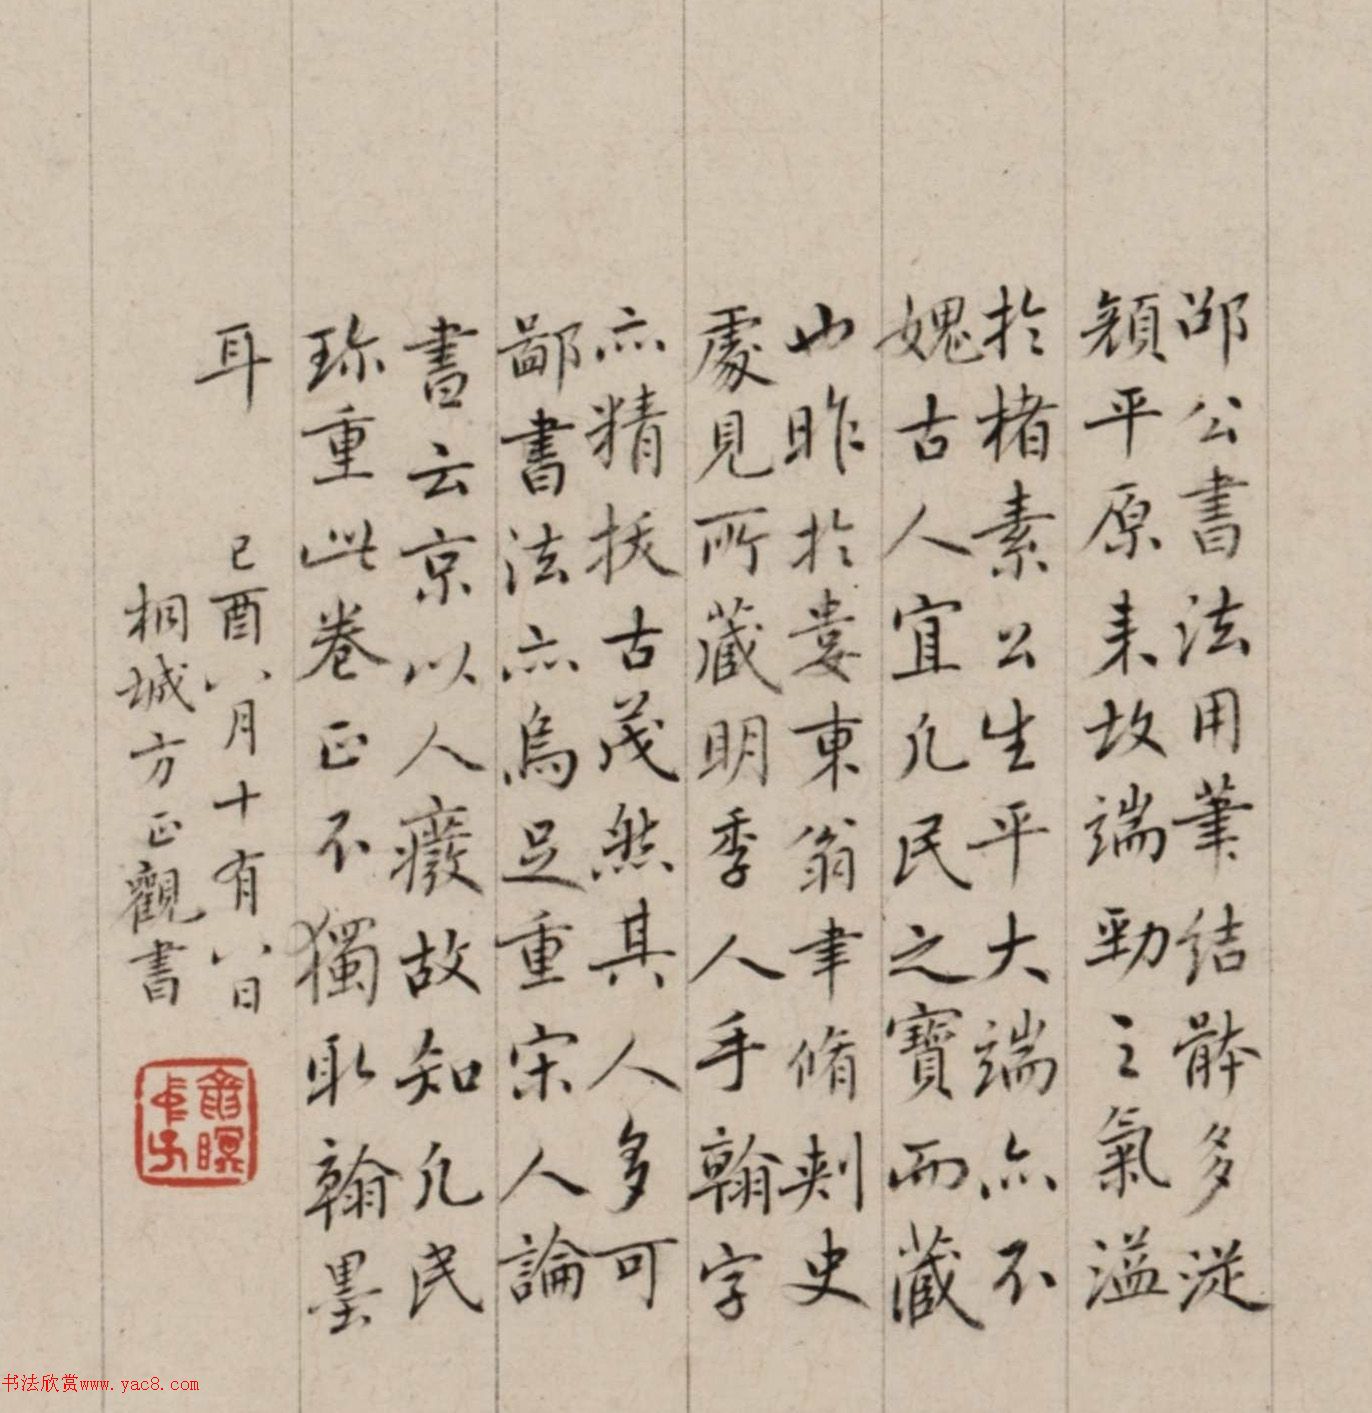 邵公書法用筆結骵多從
顏平原来故端勁之氣溢
於楮素公生平大端亦不
媿古人宜凡民之寶而藏
也昨於婁東翁聿脩刺史
處見所藏明季人手翰字
亦精拔古茂然其人多可
鄙書法亦烏足重宋人論
書云京以人廢故知凡民
珎重此卷正不獨取翰墨
耳
己酉八月十有八日
桐城方正觀書
书法欣赏www.yac8.com